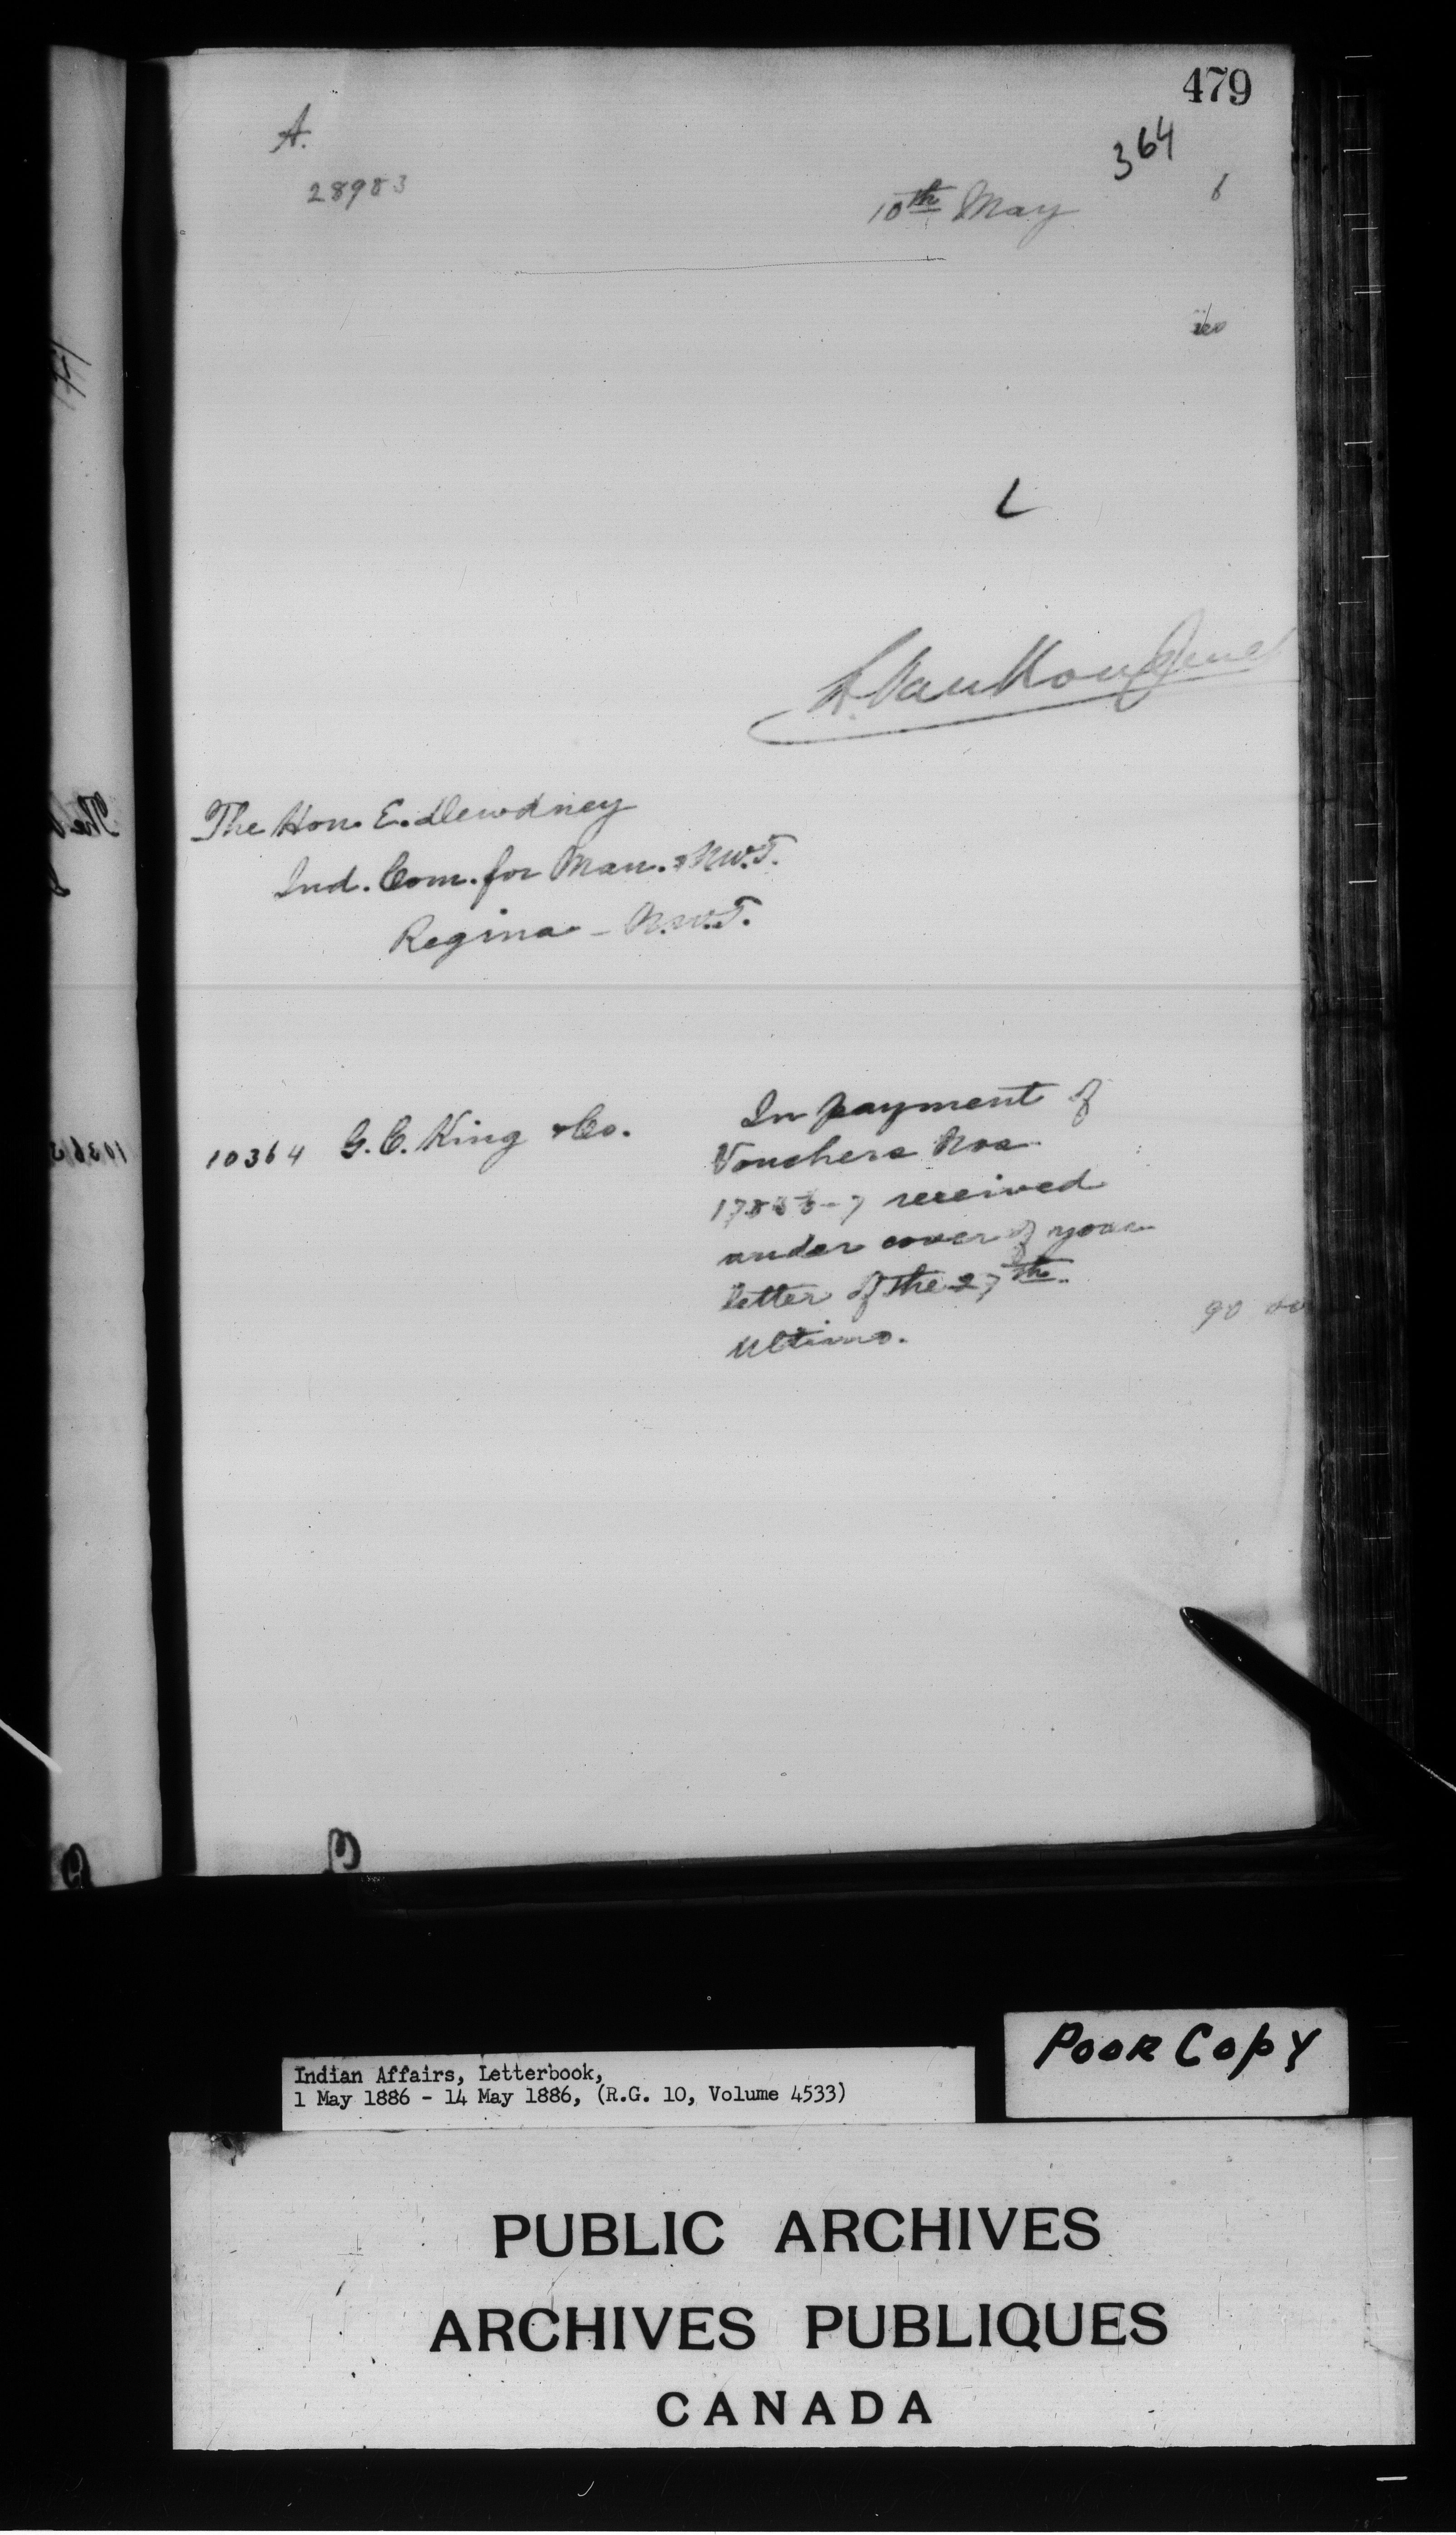 479
A.
364
28983
10th May
6
L. VanKoughnet
The Hon. E. Dewdney
Ind. Com. for Man. & N.W.T.
Regina - N.W.T.
10364 G. C. King & Co.
In payment of
Vouchers Nos
received
under cover of your
letter of the 27th
Ultimo.
90 00
Poor Copy
Indian Affairs, Letterbook,
1 May 1886 - 14 May 1886, (R.G. 10, Volume 4533)
PUBLIC ARCHIVES
ARCHIVES PUBLIQUES
CANADA